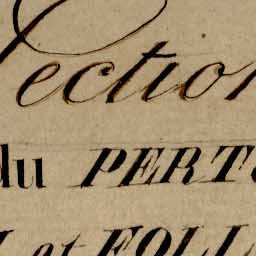 Section
du PERT
et FOLL